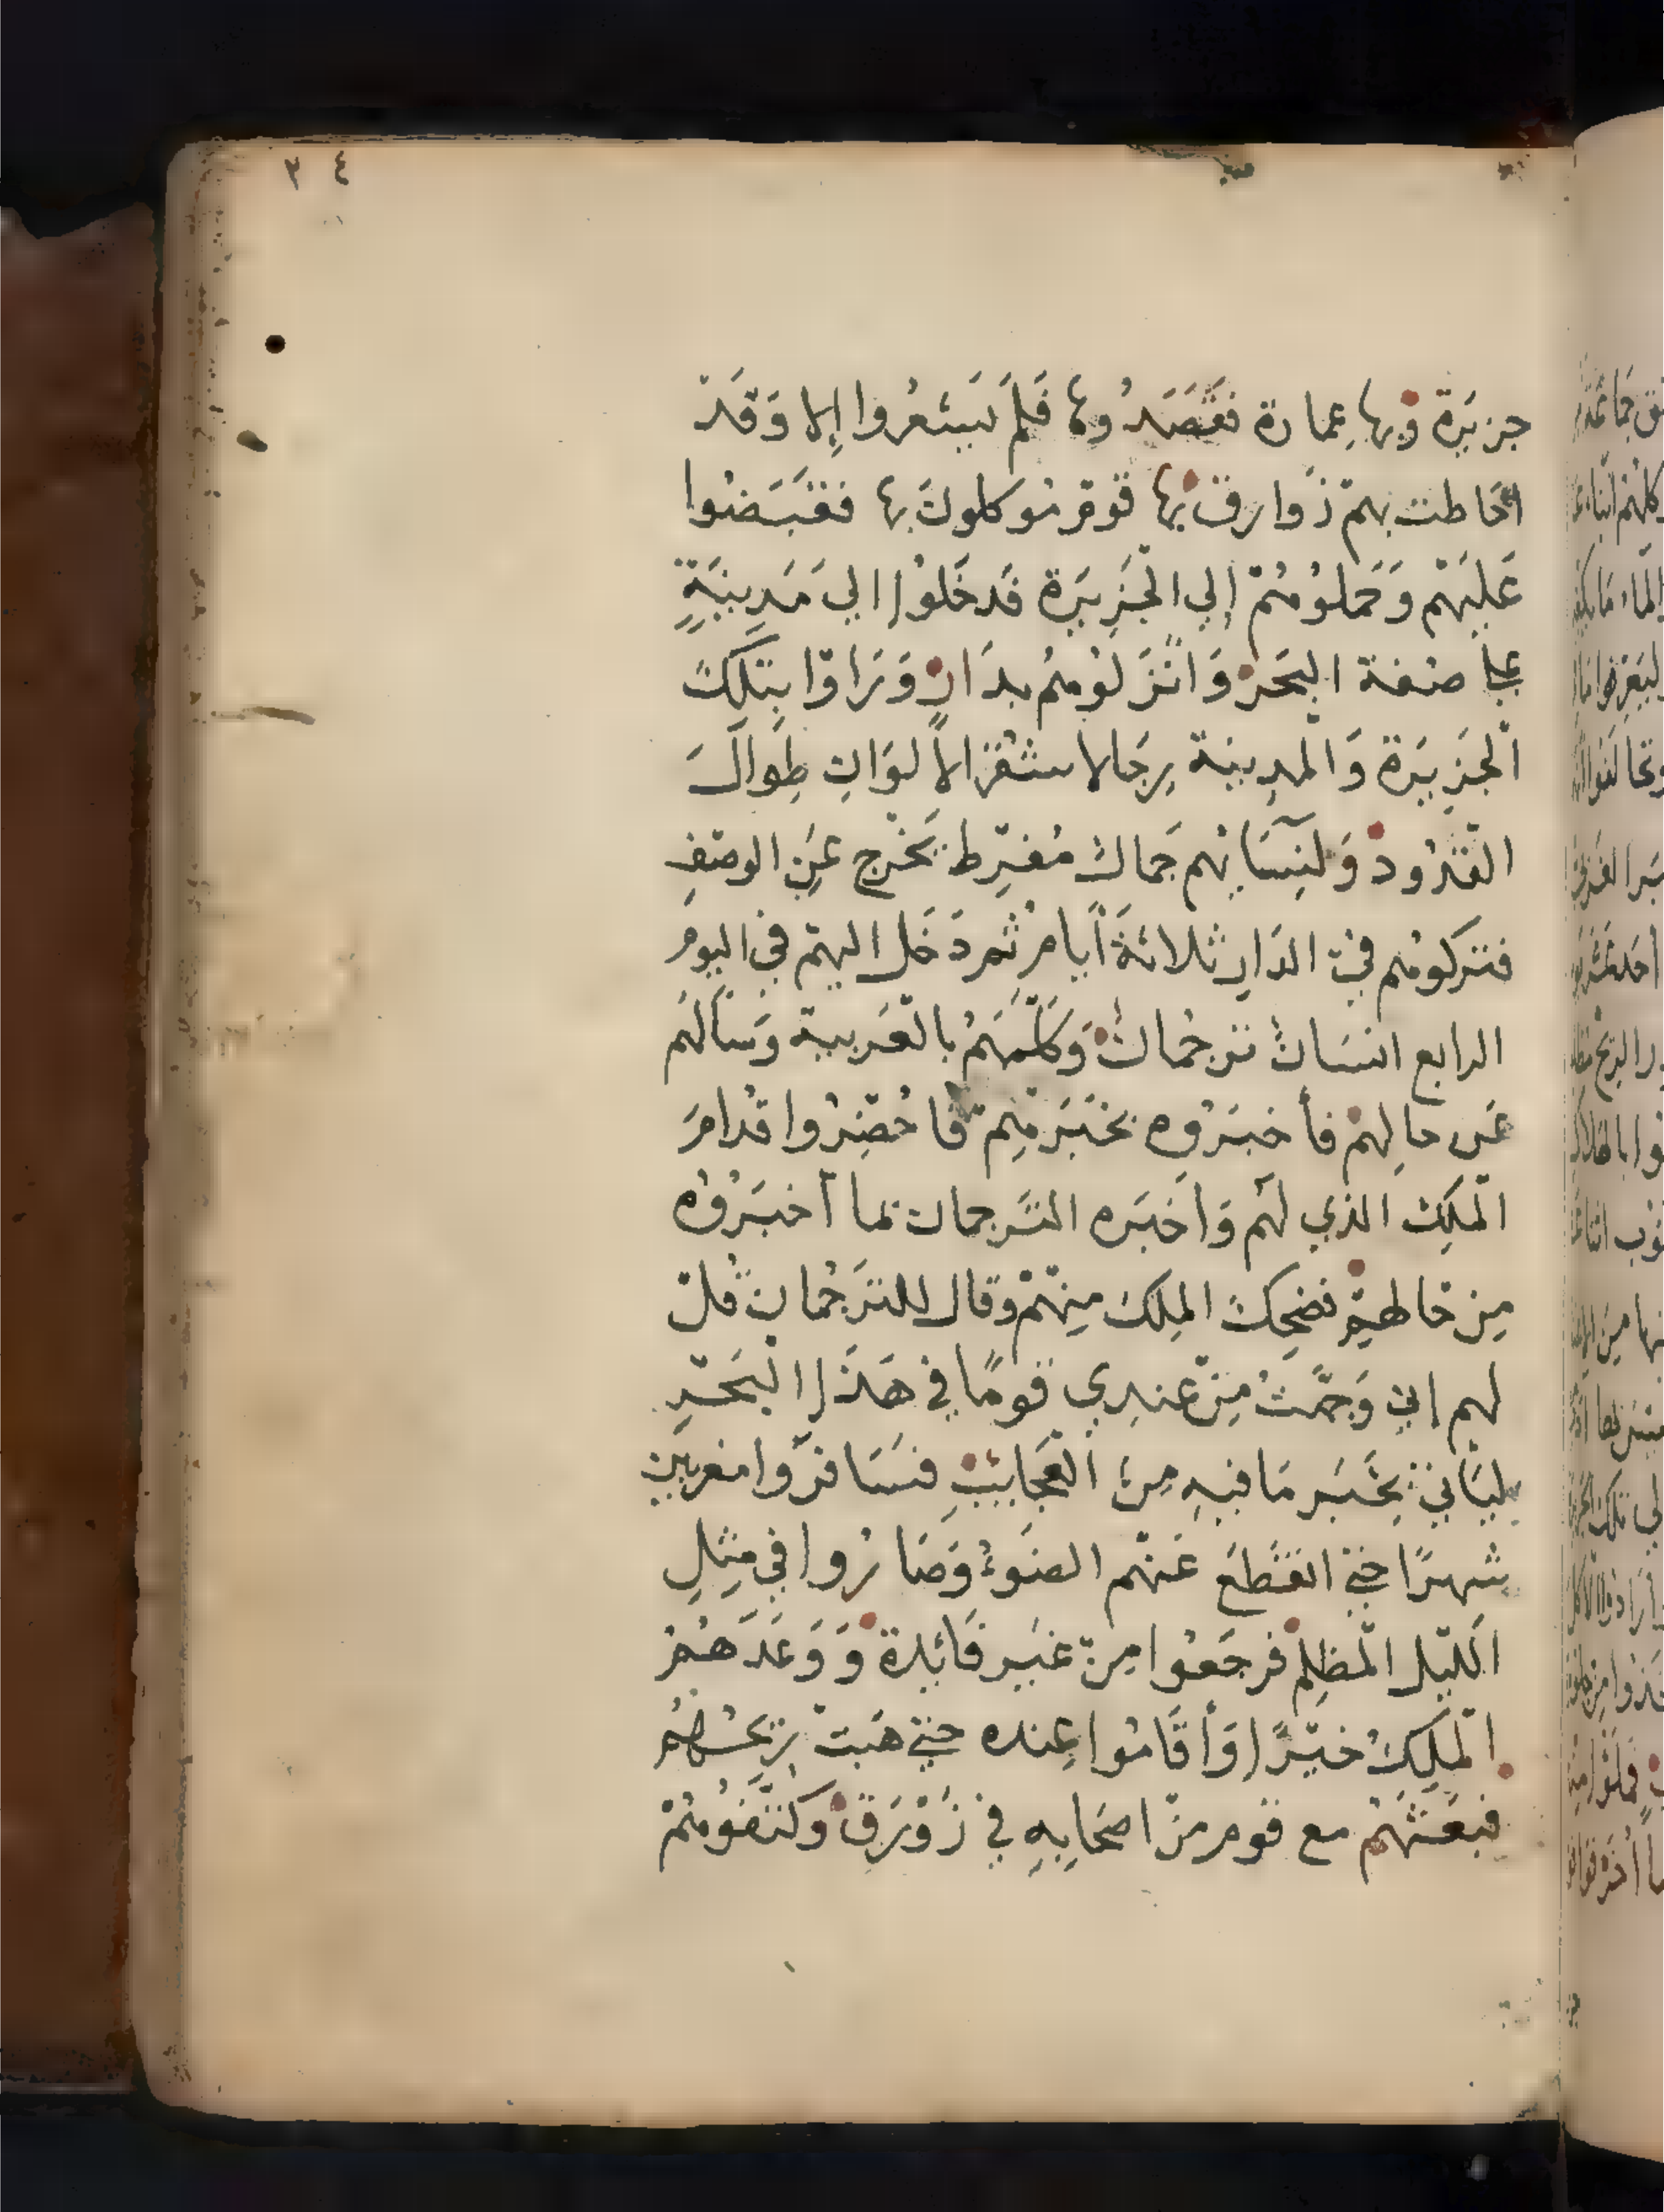 ٣٤
جزيَرة وبها عِمارة فقَصَدُوها فَلَم يَشعُروا إلا وَقَدْ
احَاطت بهم زَوارق بها قوم موكلون بها فقبَضُوا
عَلَيهم وَحَملوُهُمْ إلي الجَزِيَرة فَدخَلوُا الي مَدِينَةٍ
علي ضفة البَحر وَانْزَلوُهم بدَارٍ وَرَاوْا بتلكَ
الجَزِيَرة وَالمدِينة رِجَالا شقْرًا لا لوَان طِوَالَ
القُدُود وَلِنِسَائهم جَمالٌ مُفِرط يَخْرج عَنِ الوصْفِ
فتركوُهم في الدَارِ ثلاثةَ أيامٍ ثم دَخَل اليهم في اليومِ
الرابع انسَانٌ ترجُمانٌ وَكَلَّمَهُمْ بالعَربية وَسَألَهُم
عَن حالِهمْ فأخبَرُوه بخَبَرهِم فَاُحضِرُوا قُدامَ
المَلِك الذي لَهُم وَاخبَره التَرجمان بما أخبَرُوُه
مِن حالهِم فضحِكَ المَلِك مِنهُمْ وقال للتَرجُمان قُلْ
لهم إني وَجَّهتُ مِنْ عندِي قومًا في هَذَا البَحْرِ
ليَاتي بخَبَر مَا فيهِ مِنَ العَجَايبِ فسَافرُوا مغربين
شهرًا حتي انقَطعَ عَنهم الضوَءُ وَصَارُوا في مِثلِ
الليل المُظلِم فرجَعُوا مِنْ غَير فَائدة وَوَعَدَهُمْ
المَلِكُ خيْرًا وَأقَامُوا عِنده حتي هَبتْ رِيحُهُم
فبَعَثَهُمْ مع قوم من اصحَابِهِ في زَوْرَقٍ وَكتَّفوُهُمْ